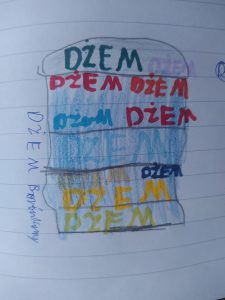 DŻEM
DŻEM
DŻEM DŻEM
DŻEM DŻEM
DŻEM
DŻEM
DŻEM
DŻEM
DŻEM